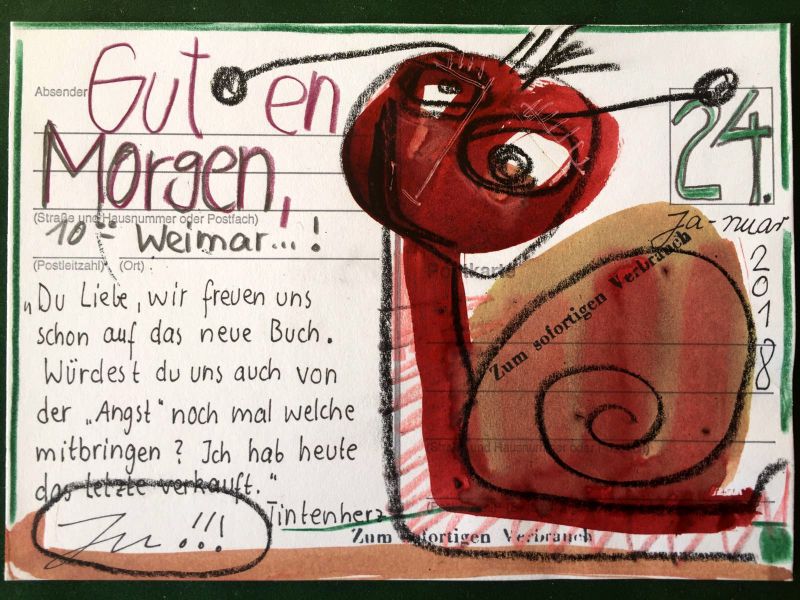 Absender
Guten
Morgen,
(Straße und Hausnummer oder Postfach)
10:- Weimar...!
(Postleitzahl) (Ort)
„Du Liebe, wir freuen uns
schon auf das neue Buch.
Würdest du uns auch von
der „Angst“ noch mal welche
mitbringen? Ich hab heute
das letzte verkauft.“
Tintenherz
!!!
24.
Ja-nuar
2018
Postkarte
Zum sofortigen Verbrauch
Straße und Hausnummer oder
Zum sofortigen Verbrauch